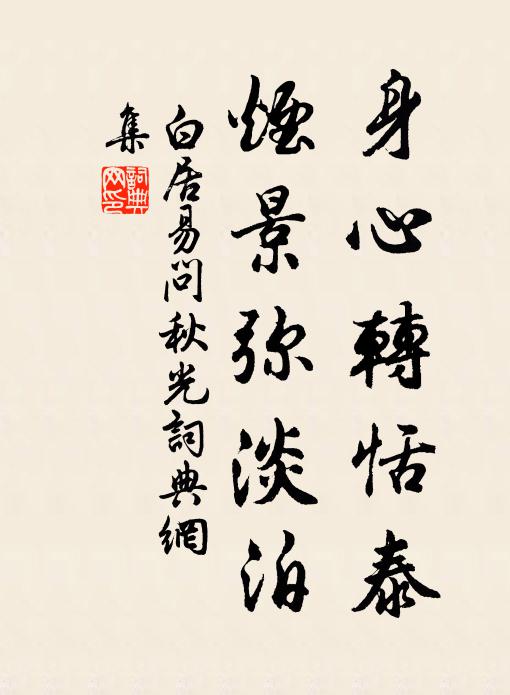 身心轉恬泰
煙景弥淡泊
白居易問秋光詞典網
集
詞典網印